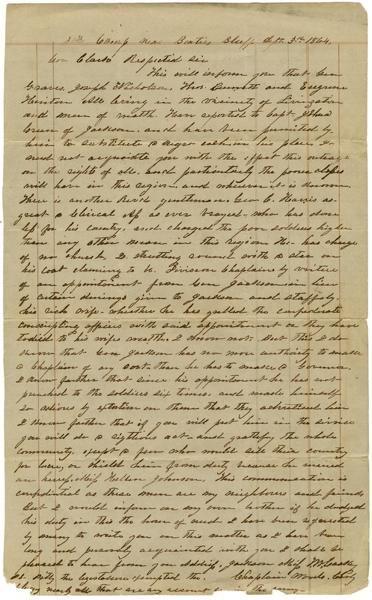 Camp near Sept. 3rd 1864.
Gov Clark Respected Sir
This will inform you that Geo
Graves, Joseph Nicholson, Thos. Burnett and Eugene
all living in the vicinity of Livingston
and men of wealth. Have reported to Capt.
of Jackson. and have been permitted by
him to substitute a negro each in his place. I
need not acquaint you with the effect this outrage
on the rights of all. and particularly the poorer classes
will have in this region. and wherever it is known
There is another Rev'd gentleman Geo C. Harris as
great a Clerical as ever brayed. who has done
for his country, and charged the poor soldiers higher
than any other man in this region He has charge
of no church & strutting around with a star on
his coat claiming to be Division Chaplain by virtue
of an appointment from Gen Jackson in lieu
of certain dinings given to Jackson and staff by
his rich wife. whether he has gulled the confederate
conscripting officers with said appointment or they have
to his wifes wealth, I know not. But this I do
know that Gen Jackson has no more authority to make
a Chaplain of any sort than he has to make a Governor.
I know farther that since his appointment he has not
preached to the soldiers six times. and made himself
so odious by extortion on them that they
I know farther that if you will put him in the service
you will do a righteous act. and gratify the whole
community, except a few who would sell their country
for, or shield him from duty because he married
an heiress Miss Helen Johnson. This communication is
confidential as these men are my neighbours and friends
But I would inform on my own brother if he dodged
his duty in this the hour of need I have been requested
by many to write you on this matter as I have been
long and personally acquainted with you I shall be
pleased to hear from you address, Jackson Miss
Chaplain Woods
why the legislature exempted the
nearly all that are any account in the army